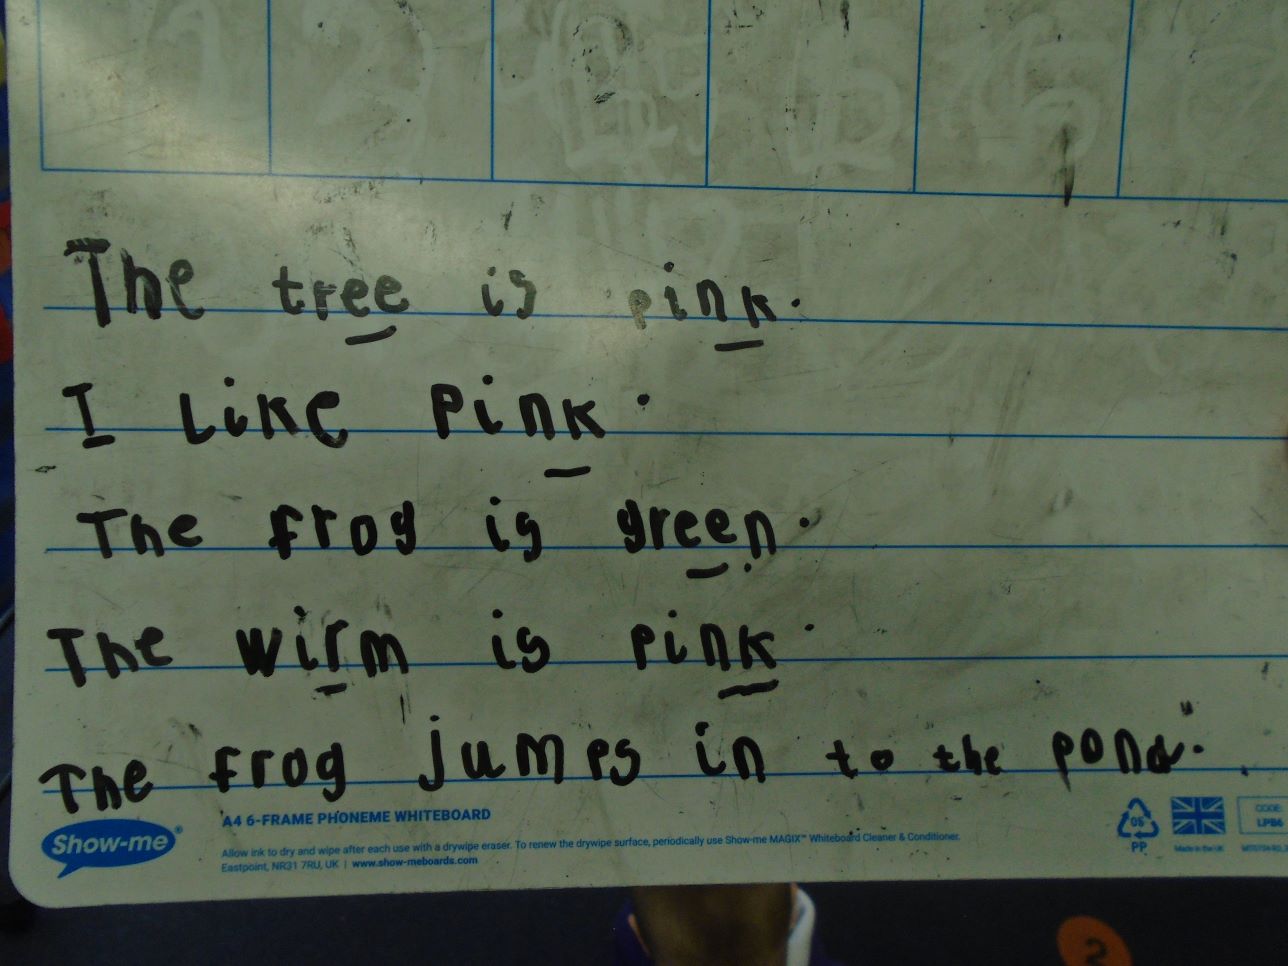 The tree is pink.
I like pink.
The frog is green.
The wirm is pink.
The frog jumps in to the pond.
Show-me®
A4 6-FRAME PHONEME WHITEBOARD
Allow ink to dry and wipe after each use with a drywipe eraser. To renew the drywipe surface, periodically use Show-me MAGIX™ Whiteboard Cleaner & Conditioner.
Eastpoint, NR31 7RU, UK | www.show-meboards.com
05
PP
Made in the UK
CODE:
LPB6
2